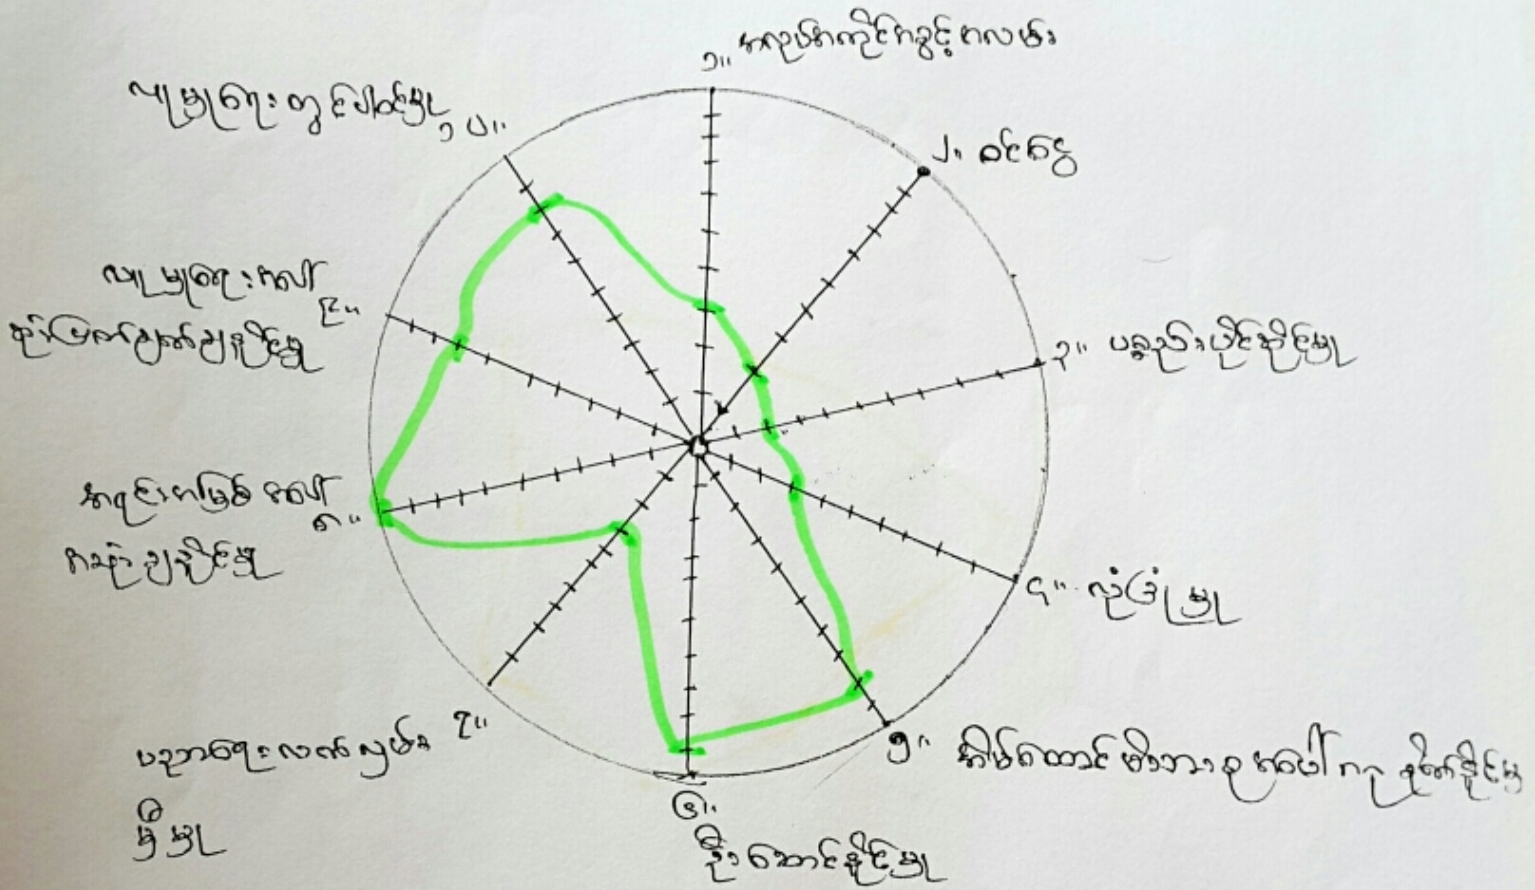 ၁။ အလုပ်အကိုင်အခွင့်အလမ်း
၂။ ဝင်ငွေ
၃။ ပစ္စည်းပိုင်ဆိုင်မှု
၄။ လုံခြုံမှု
၅။ အိမ်ထောင်မိသားစုအပေါ်
၆။ ဦးဆောင်နိုင်မှု
၇။ ပညာရေးလက်လှမ်း
မှီမှု
၈။ အရင်းအမြစ်အပေါ်
အသုံးချနိုင်မှု
၉။ လူမှုရေးအပေါ်
ဆုံးဖြတ်ချက်ချနိုင်မှု
၁၀။ လူမှုရေးတွင်ပါဝင်မှု